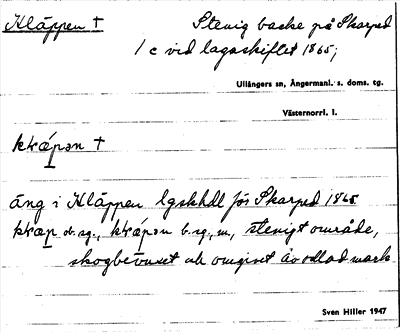 Kläppen † Stenig backe på Skarped
1 c vid lagaskiftet 1865;
Ullångers sn, Ångermanl. s. doms. tg.
Västernorrl. l.
kḷæ̀pən †
äng i Kläppen lgskhdl för Skarped 1865
kḷæp ob. sg., kḷæ̀pən b. sg., m., stenigt område,
skogbevuxet och omgivet av odlad mark
Sven Hiller 1947